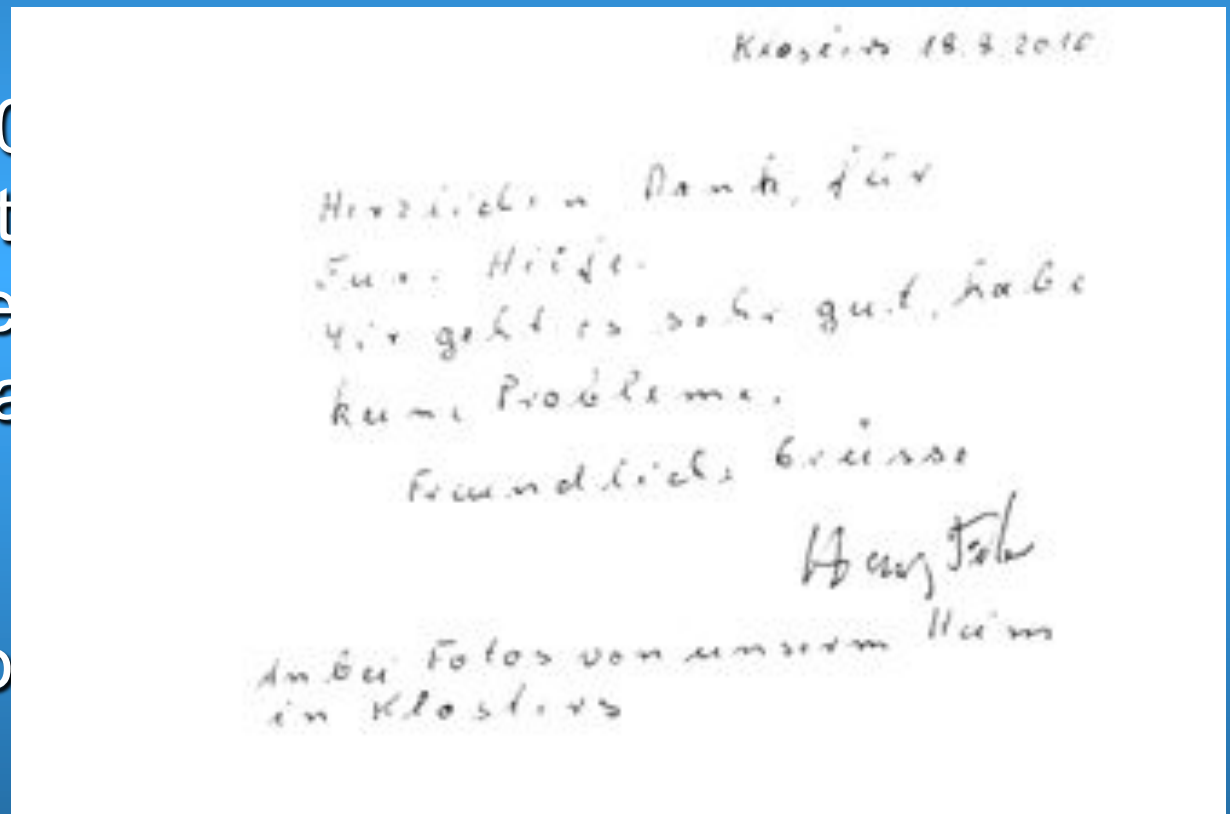 Klosters 18.8.2010
Herzlichen Dank, für
Eure Hilfe.
Mir geht es sehr gut, habe
keine Probleme.
Freundliche Grüsse
Anbei Fotos von unserm Heim
in Klosters